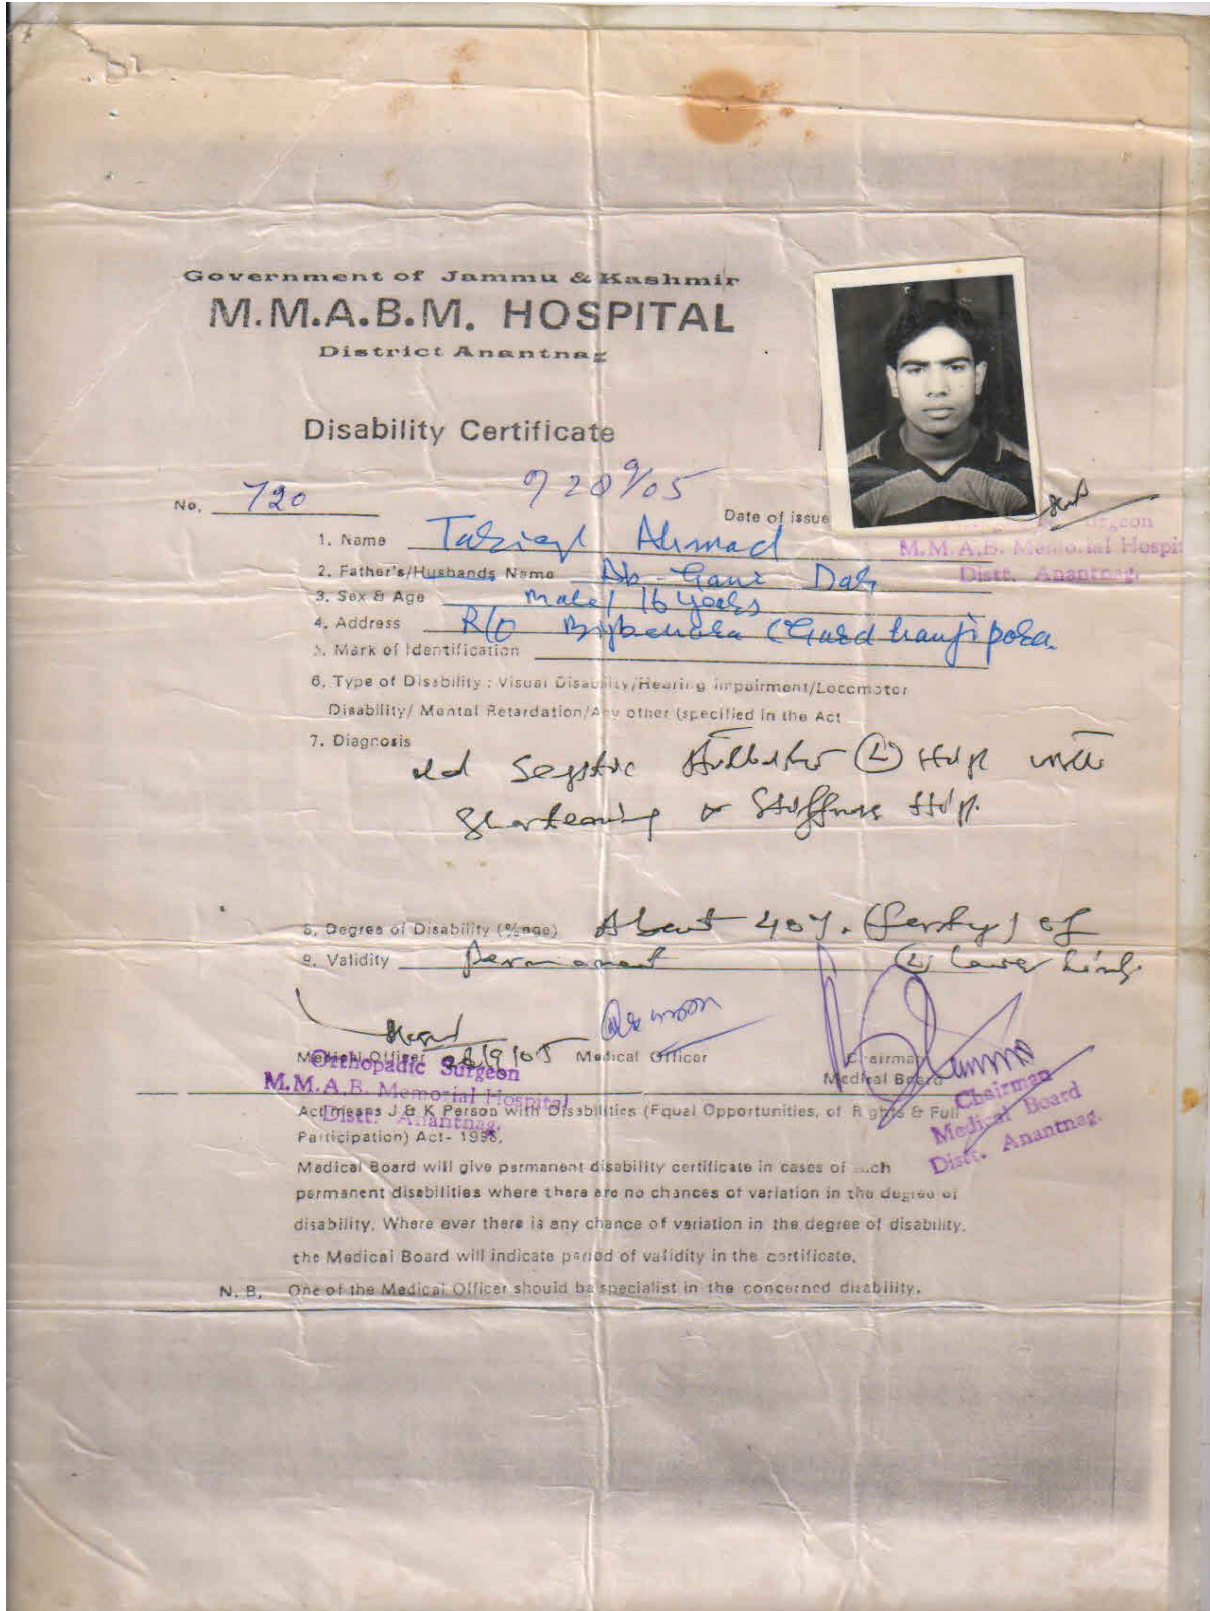 Government of Jammu & Kashmir
M.M.A.B.M. HOSPITAL
District Anantnag
Disability Certificate
No. 720
28 9/05
Date of issue
1. Name Tariq Ahmad
Surgeon
M.M.A.B. Memorial Hospi
Distt. Anantnag.
2. Father's/Husbands Name Ab-Gani Dar
3. Sex & Age Male/ 16 years
4. Address R/O Bijbehara
5. Mark of Identification
6. Type of Disability : Visual Disability/Hearing impairment/Locomotor
Disability/ Mental Retardation/Any other (specified in the Act
7. Diagnosis
old Septic Arthritis (L) Hip with
Shortening & Stiffness Hip.
8. Degree of Disability (%age) About 40%. (forty) of
9. Validity Permanent (L) Lower Limb.
Medical Officer 28/9/05 Medical Officer Chairman
Medical Board
Orthopadic Surgeon
M.M.A.B. Memorial Hospital
Distt. Anantnag.
Chairman
Medical Board
Distt. Anantnag.
Act means J & K Person with Disabilities (Equal Opportunities, of Rights & Full
Participation) Act- 1998.
Medical Board will give permanent disability certificate in cases of such
permanent disabilities where there are no chances of variation in the degree of
disability. Where ever there is any chance of variation in the degree of disability.
the Medical Board will indicate period of validity in the certificate.
N. B. One of the Medical Officer should be specialist in the concerned disability.